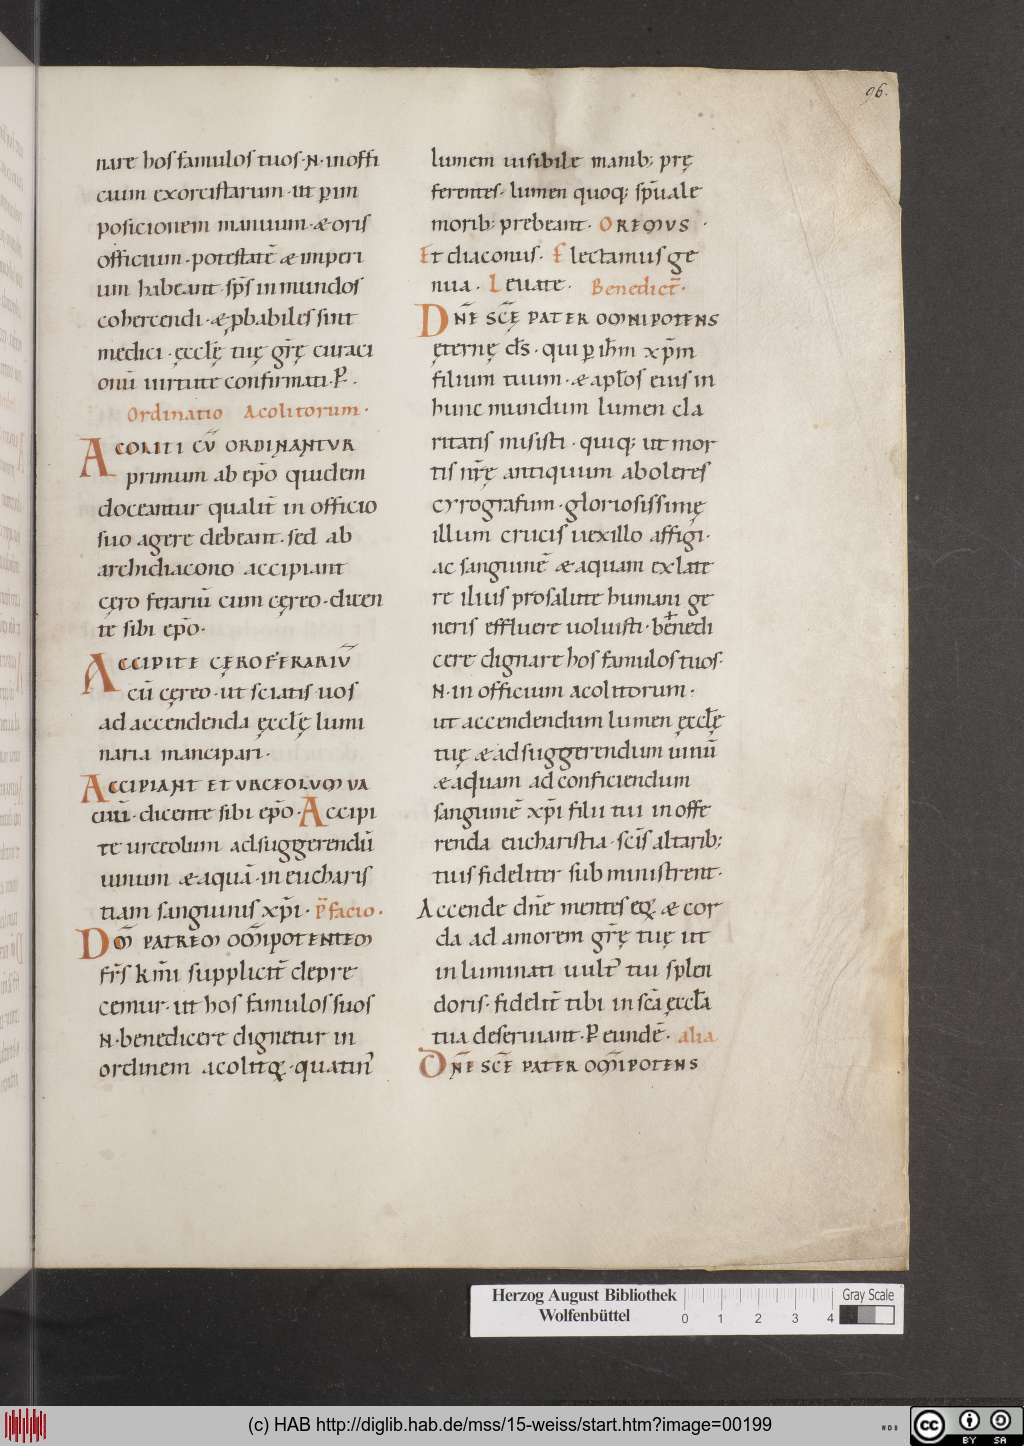 96.
nare hos famulos tuos · N · in offi
cium exorcistarum · ut p̱ im
posicionem manuum · & oris
officium · potestatē & imperi
um habeant sp̄s inmundos
cohercendi · & ꝓbabiles sint
medici · ęcclę̄ tuę gr̄ę curaci
onū uirtute confirmati · P̱ ·
Ordinatio Acolitorum ·
ACOLITI CŪ ORDINANTUR
primum ab ep̄o quidem
doceantur qualit̄ in officio
suo agere debeant · sed ab
archidiacono accipiant
cęro ferariū cum cęreo · dicen
te sibi ep̄o ·
ACCIPITE CĘROFERARIŪ
cū cęreo · ut sciatis uos
ad accendenda ęcclę̄ lumi
naria mancipari ·
ACCIPIANT ET URCEOLUM VA
cuū · dicente sibi ep̄o · Accipi
te urceolum ad suggerendū
uinum & aquā · in eucharis
tiam sanguinis xp̄i · p̄facio ·
DM̄ PATREM OM̄IPOTENTEM
fr̄s km̄i suppliciт̄ depre
cemur · ut hos famulos suos
N · benedicere dignetur in
ordinem acolitoꝝ · quatin᾿
lumem uisibile manib; prę
ferentes · lumen quoq; sp̄uale
morib; prebeant · OREMUS ·
Et diaconus · Flectamus ge
nua · Leuate · Benedict̄ ·
DN̄E SC̄Ę PATER OMNIPOTENS
ęternę d̄s · qui p̱ ih̄m xp̄m
filium tuum · & apl̄os eius in
hunc mundum lumen cla
ritatis misisti · quiq; ut mor
tis nr̄ę antiquum aboleres
cyrografum · gloriosissimę
illum crucis uexillo affigi ·
ac sanguinē & aquam ex late
re illius pro salute humani ge
neris effluere uoluisti · be†nedi
cere dignare hos famulos tuos ·
N · in officium acolitorum ·
ut accendendum lumen ęccl̄ę
tuę & ad suggerendum uinū
& aquam ad conficiendum
sanguinē xp̄i filii tui in offe
renda eucharistia · scīs altarib;
tuis fideliter sub ministrent ·
Accende dn̄e mentes eoꝝ & cor
da ad amorem gr̄ę tuę ut
inluminati uult᾿ tui splen
doris · fidelit̄ tibi in scā ęccl̄a
tua deseruiant · P̱ eundē · alia
DN̄E SC̄E PATER OM̄IPOTENS
Herzog August Bibliothek
Wolfenbüttel
0 1 2 3 4
Gray Scale
(c) HAB http://diglib.hab.de/mss/15-weiss/start.htm?image=00199
WDB
cc BY SA